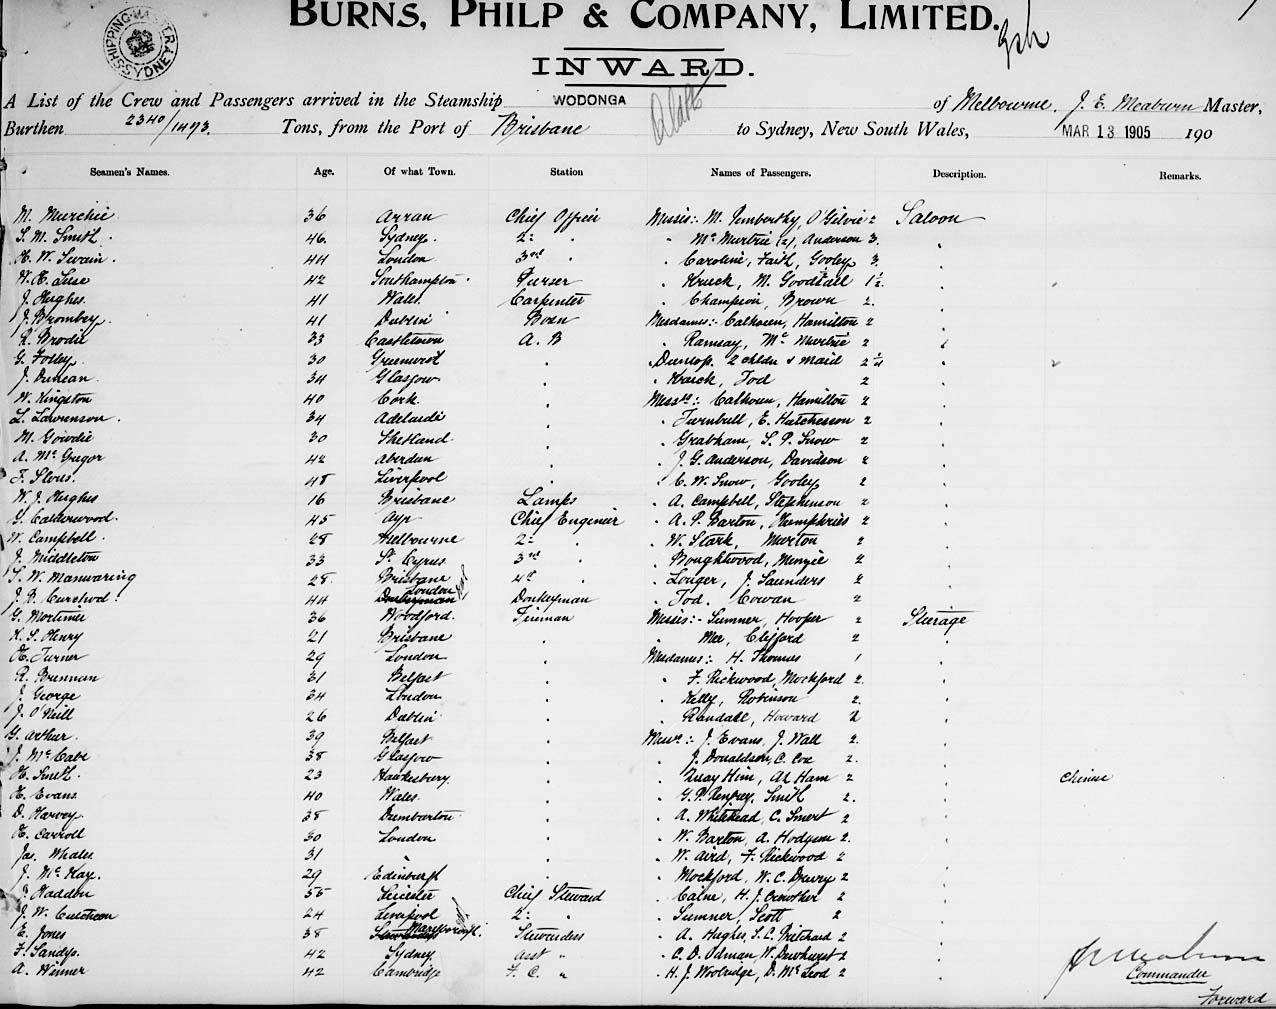 BURNS, PHILP & COMPANY, LIMITED.
SHIPPING MASTER SYDNEY
INWARD.
A List of the Crew and Passengers arrived in the Steamship WODONGA of Melbourne, J. E. Meaburn Master,
Burthen 2340/1473. Tons, from the Port of Brisbane to Sydney, New South Wales, MAR 13 1905 190
Seamen's Names. Age. Of what Town. Station Names of Passengers. Description. Remarks.
M. Murchie 36 Arran Chief Officer Misses:- M. O'Gilvie 2 Saloon
S. M. Smith 46 Sydney 2: " " McMurtrie (2), Anderson 3 "
H. W. Swain 44 London 3rd " " Caroline, Faith, Gooley 3 "
42 Southampton Purser " Kruck, M. Goodall 1½ "
J. Hughes 41 Wales Carpenter " Champion, Brown 2 "
J. Brombey 41 Dublin Bosn Mesdames:- Calhoun, Hamilton 2 "
R. Brodie 33 Castletown A. B " Ramsay, McMurtrie 2 "
G. Folley 30 " Dunlop, 2 chldn & maid 2 "
J. Duncan 34 Glasgow " " Kruck, Tod 2 "
W. Kingston 40 Cork " Messrs:- Calhoun, Hamilton 2 "
L. Lawrenson 34 Adelaide " " Turnbull, E. Hutchesson 2 "
M. Gowdie 30 Shetland " " Grabham, S. P. Snow 2 "
A. McGregor 42 Aberdeen " " J. G. Anderson, Davidson 2 "
48 Liverpool " " C. W. Snow, Gooley 2 "
W. J. Hughes 16 Brisbane Lamps " A. Campbell, Stephenson 2 "
G. Calderwood 45 Ayr Chief Engineer " A. P. Barton, Humphries 2 "
W. Campbell 28 Melbourne 2: " " W. Stark, Murton 2 "
J. Middleton 33 St. Cyrus 3rd " " Boughtwood, Menzie 2 "
S. W. Manwaring 28 Brisbane 4th " " Longer, J. Saunders 2 "
J. B. Curchod 44 London Donkeyman " Tod, Cowan 2 "
G. Mortimer 36 Woodford Fireman Misses:- Sumner, Hooper 2 Steerage
K. S. Henry 21 Brisbane " " Mee, Clifford 2 "
H. Turner 29 London " Mesdames:- H. Thomas 1 "
R. Brennan 31 Belfast " " F. Rickwood, Mockford 2 "
J. George 34 London " " Kelly, Robinson 2 "
J. O'Neill 26 Dublin " " Randall, Howard 2 "
G. Arthur 39 Belfast " Messrs:- J. Evans, J. Wall 2 "
J. McCabe 38 Glasgow " " J. Donaldson, C. Cox 2 "
H. Smith 23 Hawkesbury " " Quay Him, Ah Ham 2 " Chinese
H. Evans 40 Wales " " G. P. Renfrey, Smith 2 "
D. Harvey 38 Dumbarton " " A. Whitehead, C. Smert 2 "
H. Carroll 30 London " " W. Barton, A. Hodgson 2 "
Jas. Whales 31 " " " W. Aird, F. Rickwood 2 "
J. McKay 29 Edinburgh " " Mockford, W. C. Drury 2 "
J. Haddon 55 Leicester Chief Steward " Caine, H. J. Crowther 2 "
J. W. Cutcheon 24 Liverpool 2: " " Sumner, Scott 2 "
E. Jones 38 Maryborough Stewardess " A. Hughes, S. C. Pritchard 2 "
F. Sandys 42 Sydney asst " " C. D. Odman, W. Dewhurst 2 "
A. Winner 42 Cambridge F. C. " " H. J. Woolridge, D. McLeod 2 "
J. E. Meaburn
Commander
Forward